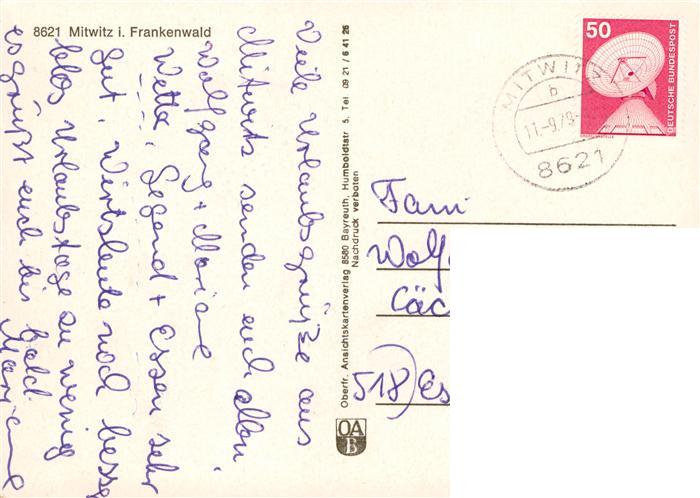 8621 Mitwitz i. Frankenwald
Viele Urlaubsgrüße aus
Mitwits senden euch allen
Wolfgang + Mariane
Wetter, Gegend + Essen sehr
gut, Wirtsleute noch besser
blos Urlaubstage zu wenig
es grüßt euch bis bald
Mariane
Oberfr. Ansichtskartenverlag 8580 Bayreuth, Humboldtstr. 5, Tel. 09 21 / 6 41 26
Nachdruck verboten
OA
B
50
DEUTSCHE BUNDESPOST
MITWITZ
b
11.-9.79-
8621
Fam
Wolf
Cäc
518) Es